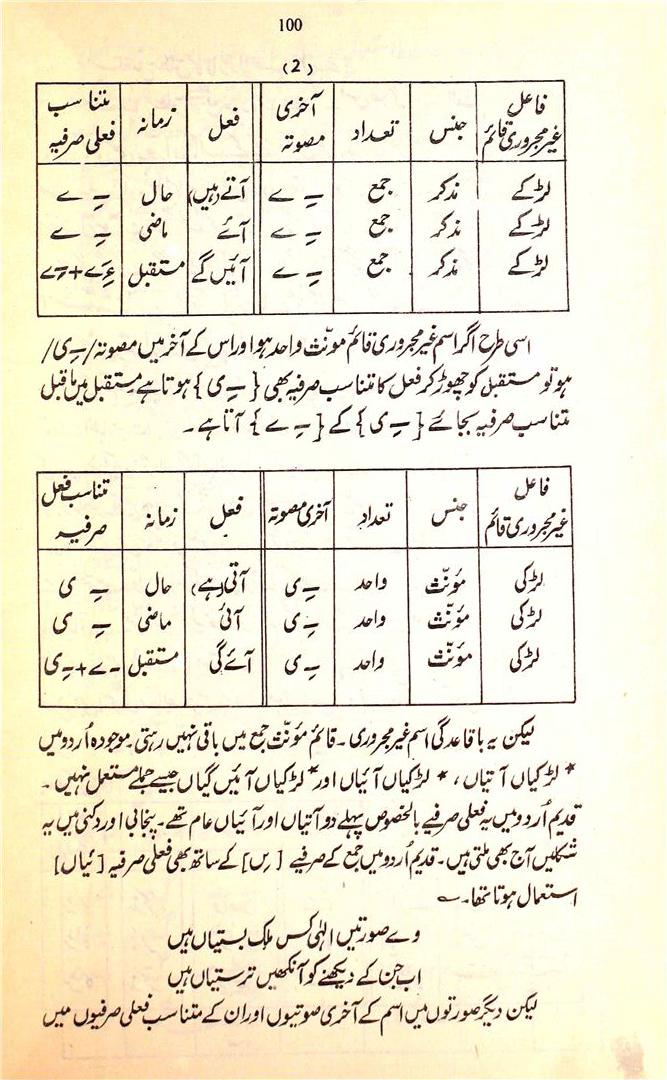 100
(2)
فاعل غیر مجروری قائم | جنس | تعداد | آخری مصوتہ | فعل | زمانہ | متناسب فعلی صرفیہ
لڑکے | مذکر | جمع | ـِ ے | آتے (ہیں) | حال | ـِ ے
لڑکے | مذکر | جمع | ـِ ے | آئے | ماضی | ـِ ے
لڑکے | مذکر | جمع | ـِ ے | آئیں گے | مستقبل
اسی طرح اگر اسم غیر مجروری قائم مونّث واحد ہو اور اس کے آخر میں مصوتہ /ـِ ی/
ہو تو مستقبل کو چھوڑ کر فعل کا متناسب صرفیہ بھی {ـِ ی} ہوتا ہے مستقبل میں ماقبل
متناسب صرفیہ بجائے {ـِ ی} کے {ـِ ے} آتا ہے۔
فاعل غیر مجروری قائم | جنس | تعداد | آخری مصوتہ | فعل | زمانہ | تناسب فعل صرفیہ
لڑکی | مؤنّث | واحد | ـِ ی | آتی (ہے) | حال | ـِ ی
لڑکی | مؤنّث | واحد | ـِ ی | آئی | ماضی | ـِ ی
لڑکی | مؤنّث | واحد | ـِ ی | آئے گی | مستقبل | ـ ے + ـِ ی
لیکن یہ باقاعدگی اسم غیر مجروری ۔ قائم مونّث جمع میں باقی نہیں رہتی ۔ موجودہ اُردو میں
* لڑکیاں آتیاں ، * لڑکیاں آئیاں اور * لڑکیاں آئیں گیاں جیسے جملے مستعمل نہیں ۔
قدیم اُردو میں یہ فعلی صرفیے بالخصوص پہلے دو آتیاں اور آئیاں عام تھے ۔ پنجابی اور دکنی میں یہ
شکلیں آج بھی ملتی ہیں ۔ قدیم اُردو میں جمع کے صرفیے [ ں ] کے ساتھ بھی فعلی صرفیہ [ ئیاں ]
استعمال ہوتا تھا ۔ ؎
وے صورتیں الٰہی کس ملک بستیاں ہیں
اب جن کے دیکھنے کو آنکھیں ترستیاں ہیں
لیکن دیگر صورتوں میں اسم کے آخری صوتیوں اور ان کے متناسب فعلی صرفیوں میں